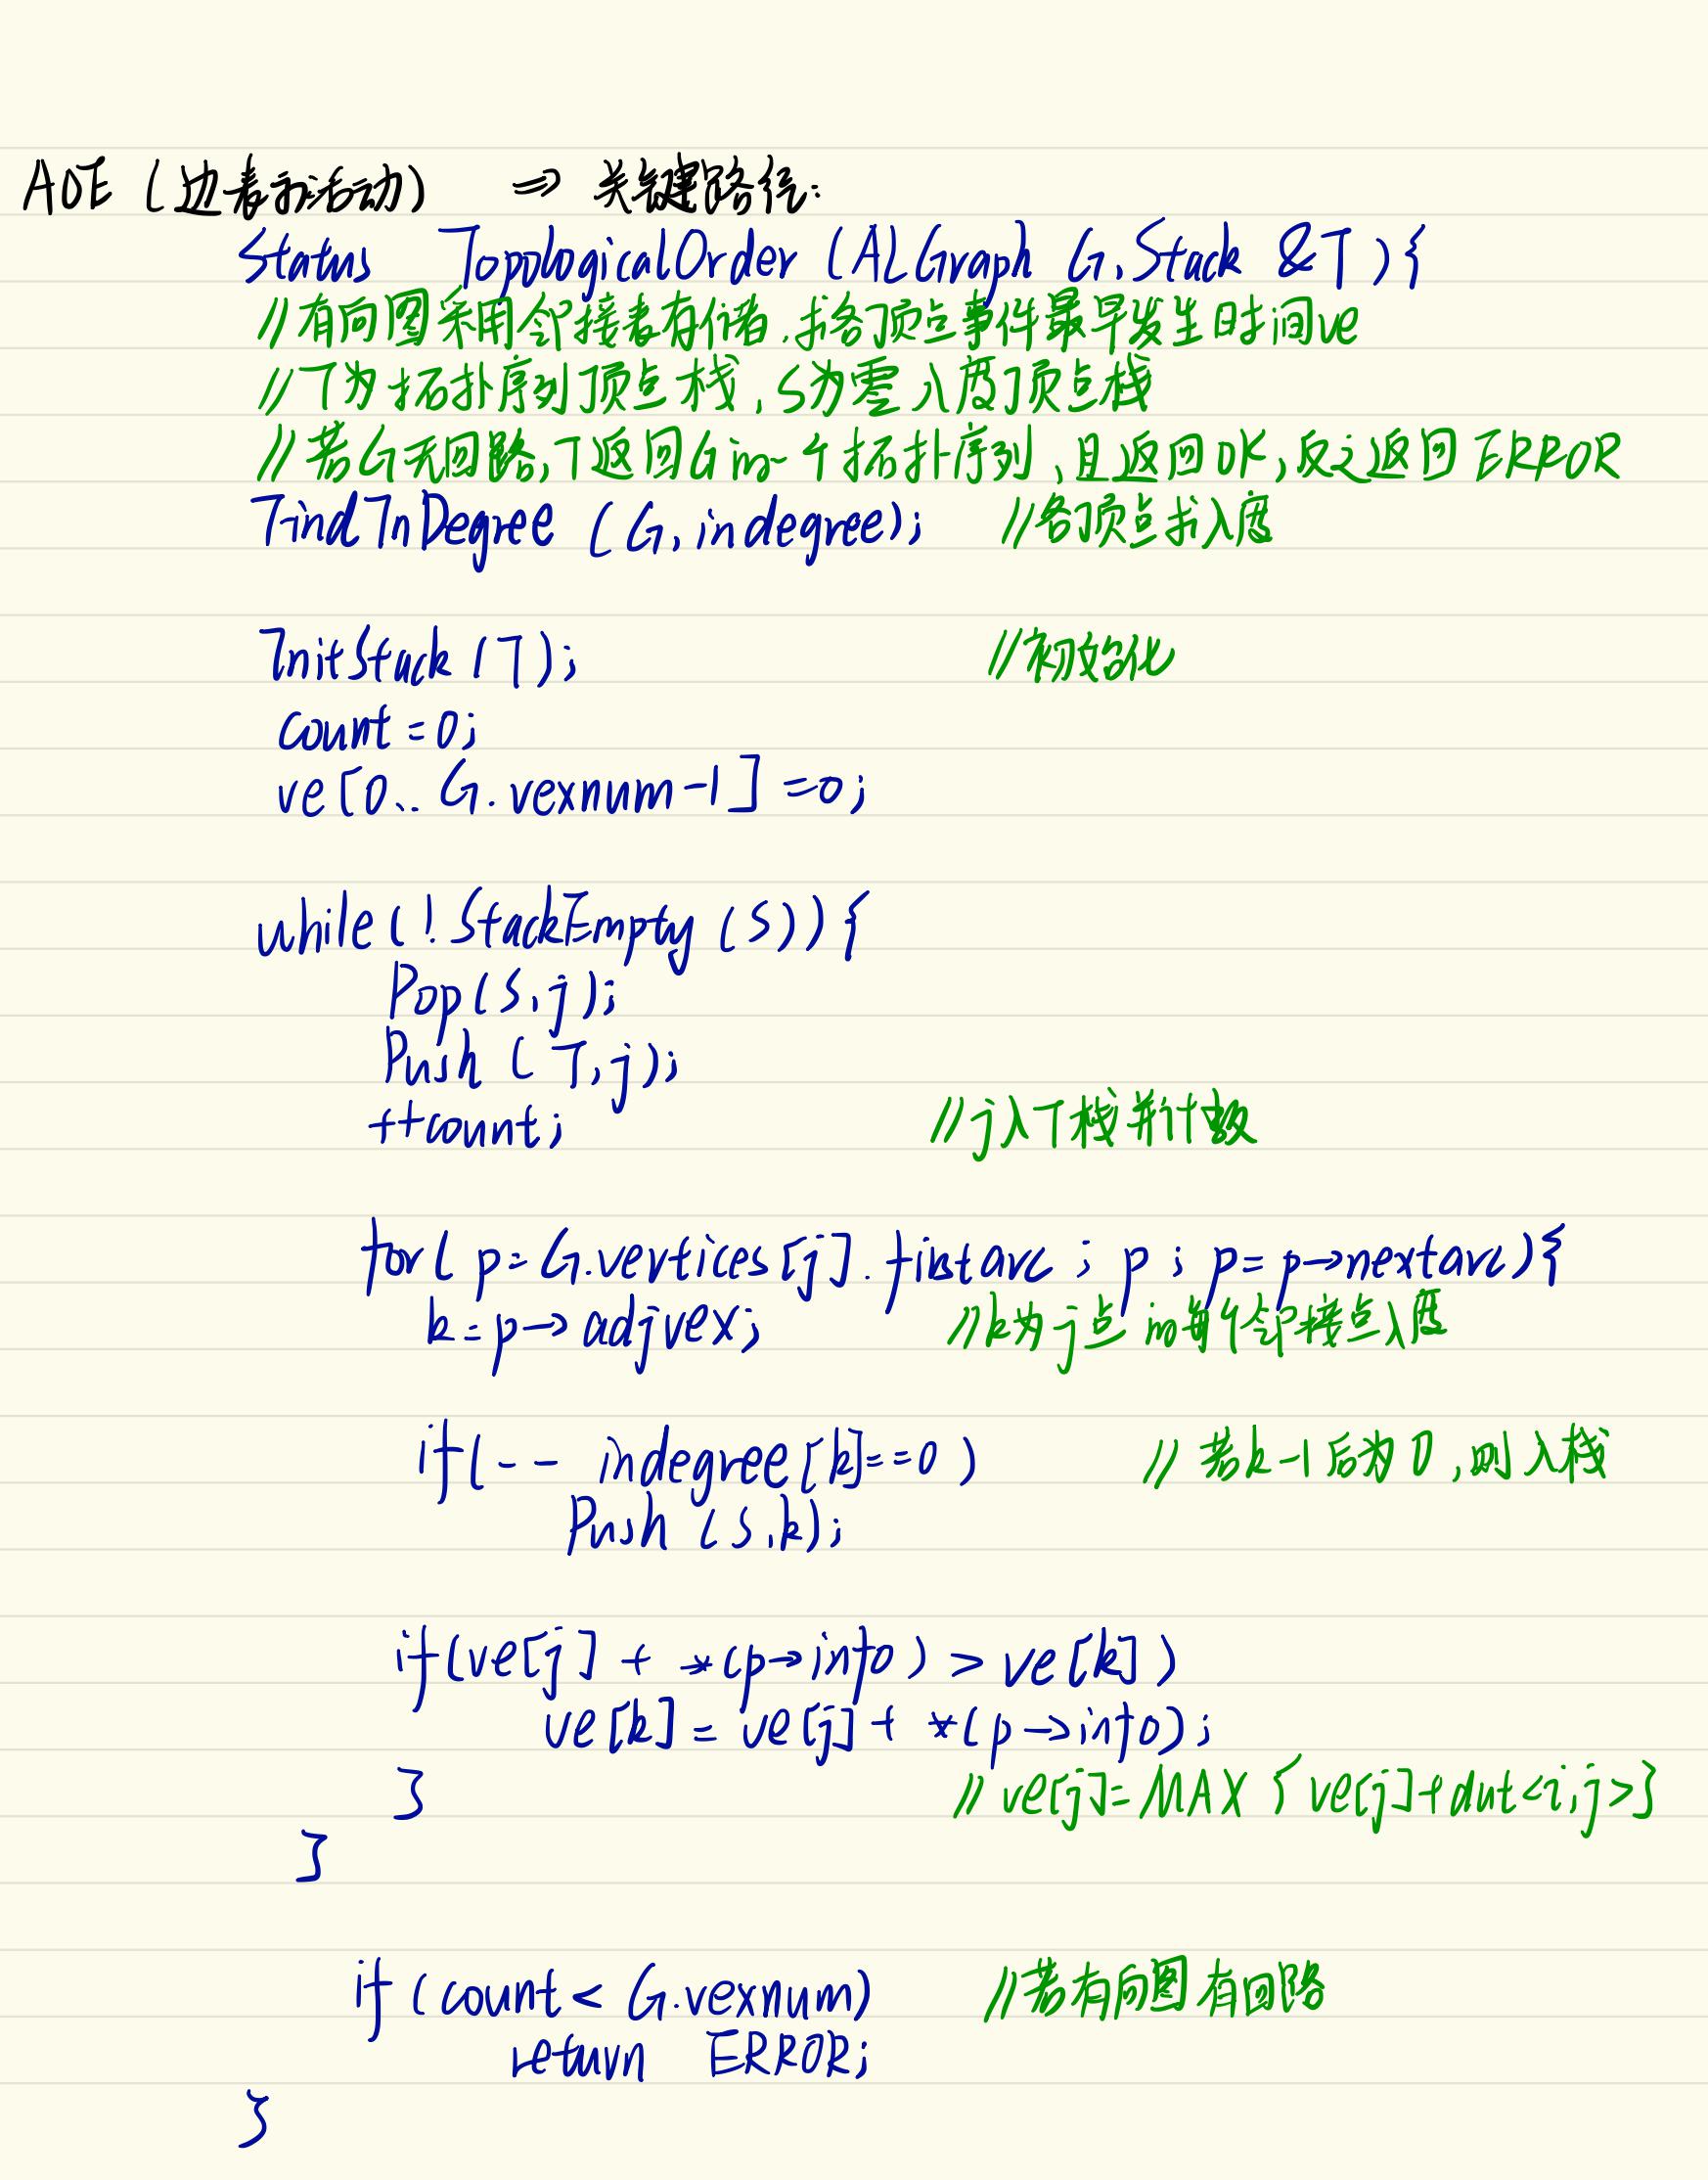 AOE (边表示活动) => 关键路径:
Status TopologicalOrder (ALGraph G, Stack &T){
//有向图采用邻接表存储,求各顶点事件最早发生时间ve
//T为拓扑序列顶点栈,S为零入度顶点栈
//若G无回路,T返回G的一个拓扑序列,且返回OK,反之返回ERROR
FindInDegree (G, indegree); //各顶点求入度
InitStack (T); //初始化
count = 0;
ve[0.. G.vexnum-1] = 0;
while (! StackEmpty (S)) {
Pop(S, j);
Push (T, j);
++count; //j入T栈并计数
for( p = G.vertices[j]. firstarc ; p ; p = p->nextarc){
k = p-> adjvex; //k为j点的每个邻接点入度
if( -- indegree[k] == 0 ) //若k-1后为0,则入栈
Push (S, k);
if(ve[j] + *(p->info) > ve[k] )
ve[k] = ve[j] + *(p->info);
} // ve[j] = MAX { ve[j]+dut<i,j>}
}
if (count < G.vexnum) //若有向图有回路
return ERROR;
}